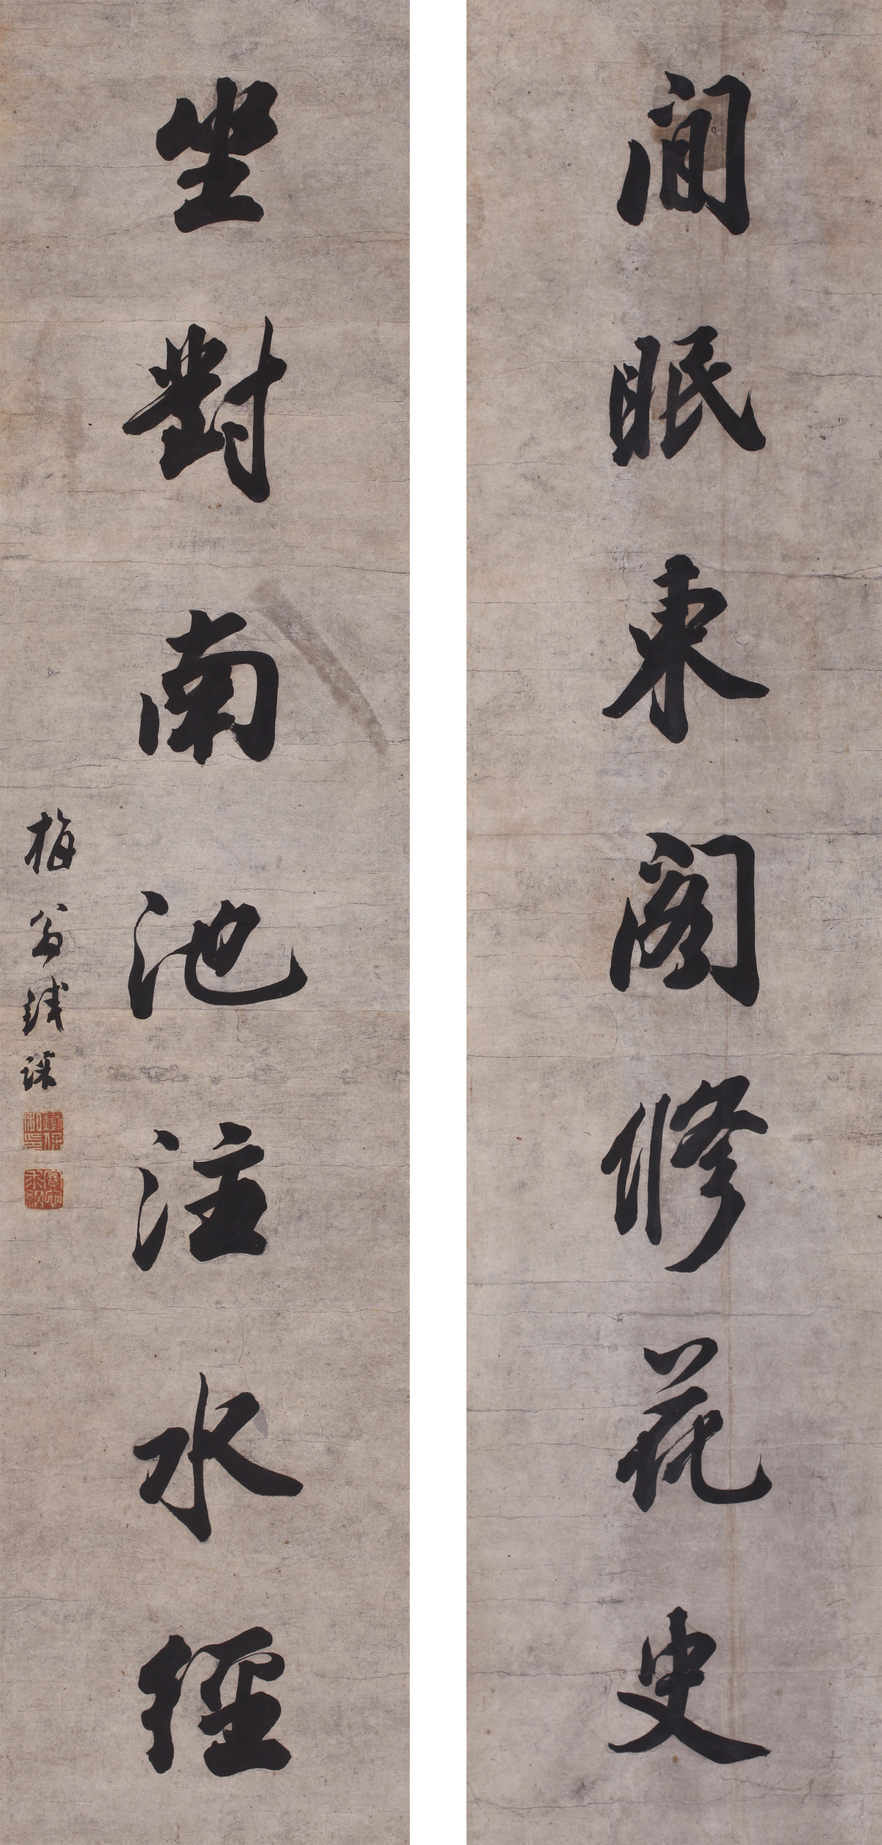 閒眠東閣修花史
坐對南池注水經
梅翁鐵保